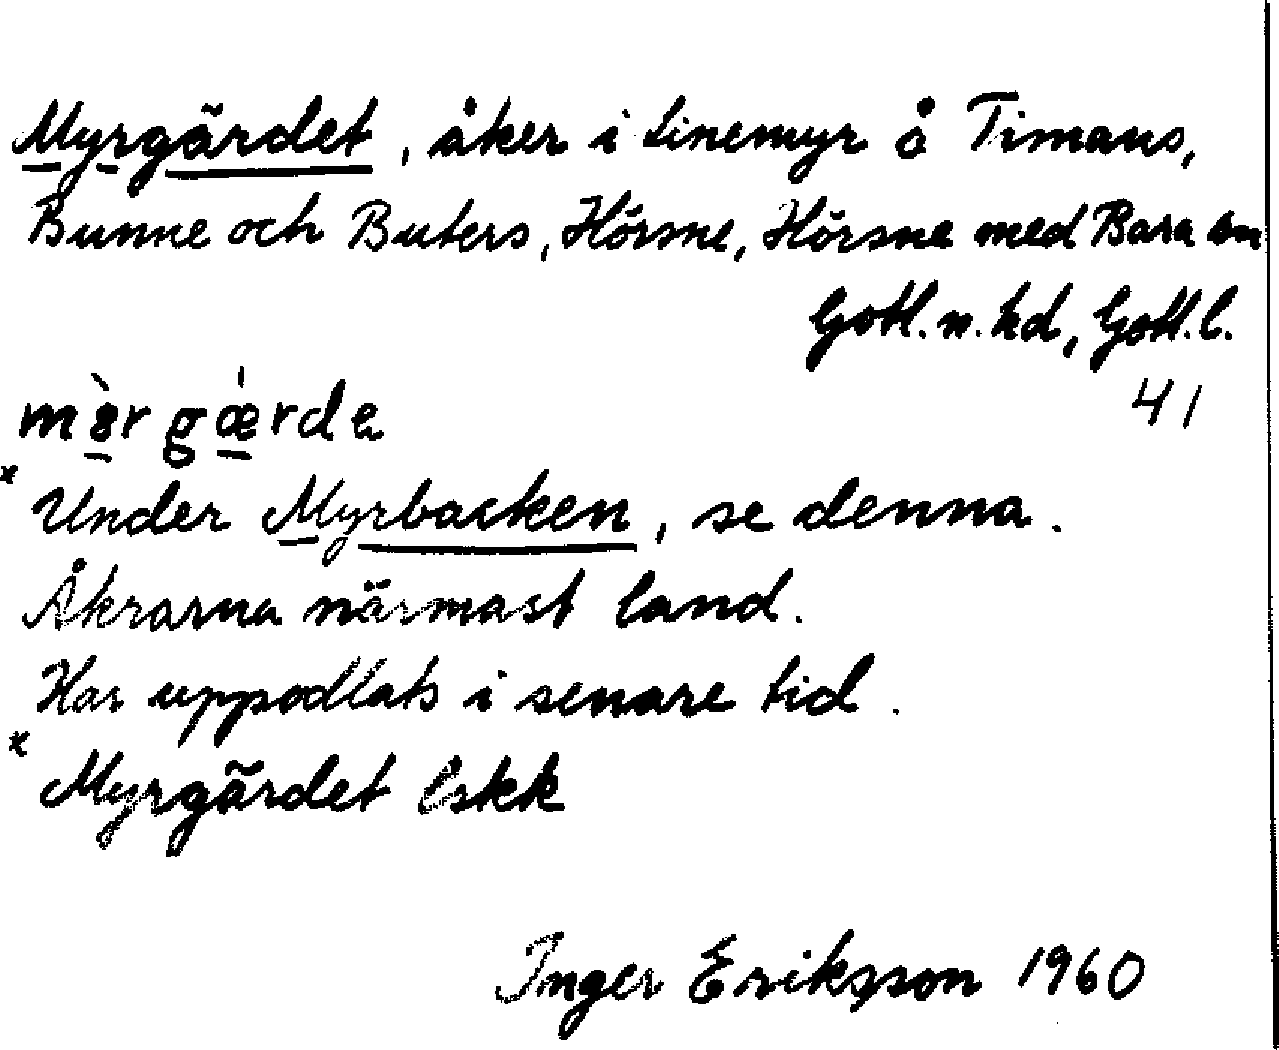 Myrgärdet, åker i Linemyr å Timans,
Bunne och Buters, Hörsne, Hörsne med Bara sn
Gotl. n. hd, Gotl. l.
41
mə̀rgǽrdɛ
× Under Myrbacken, se denna.
Åkrarna närmast land.
Har uppodlats i senare tid.
× Myrgärdet Eskk
Inger Eriksson 1960